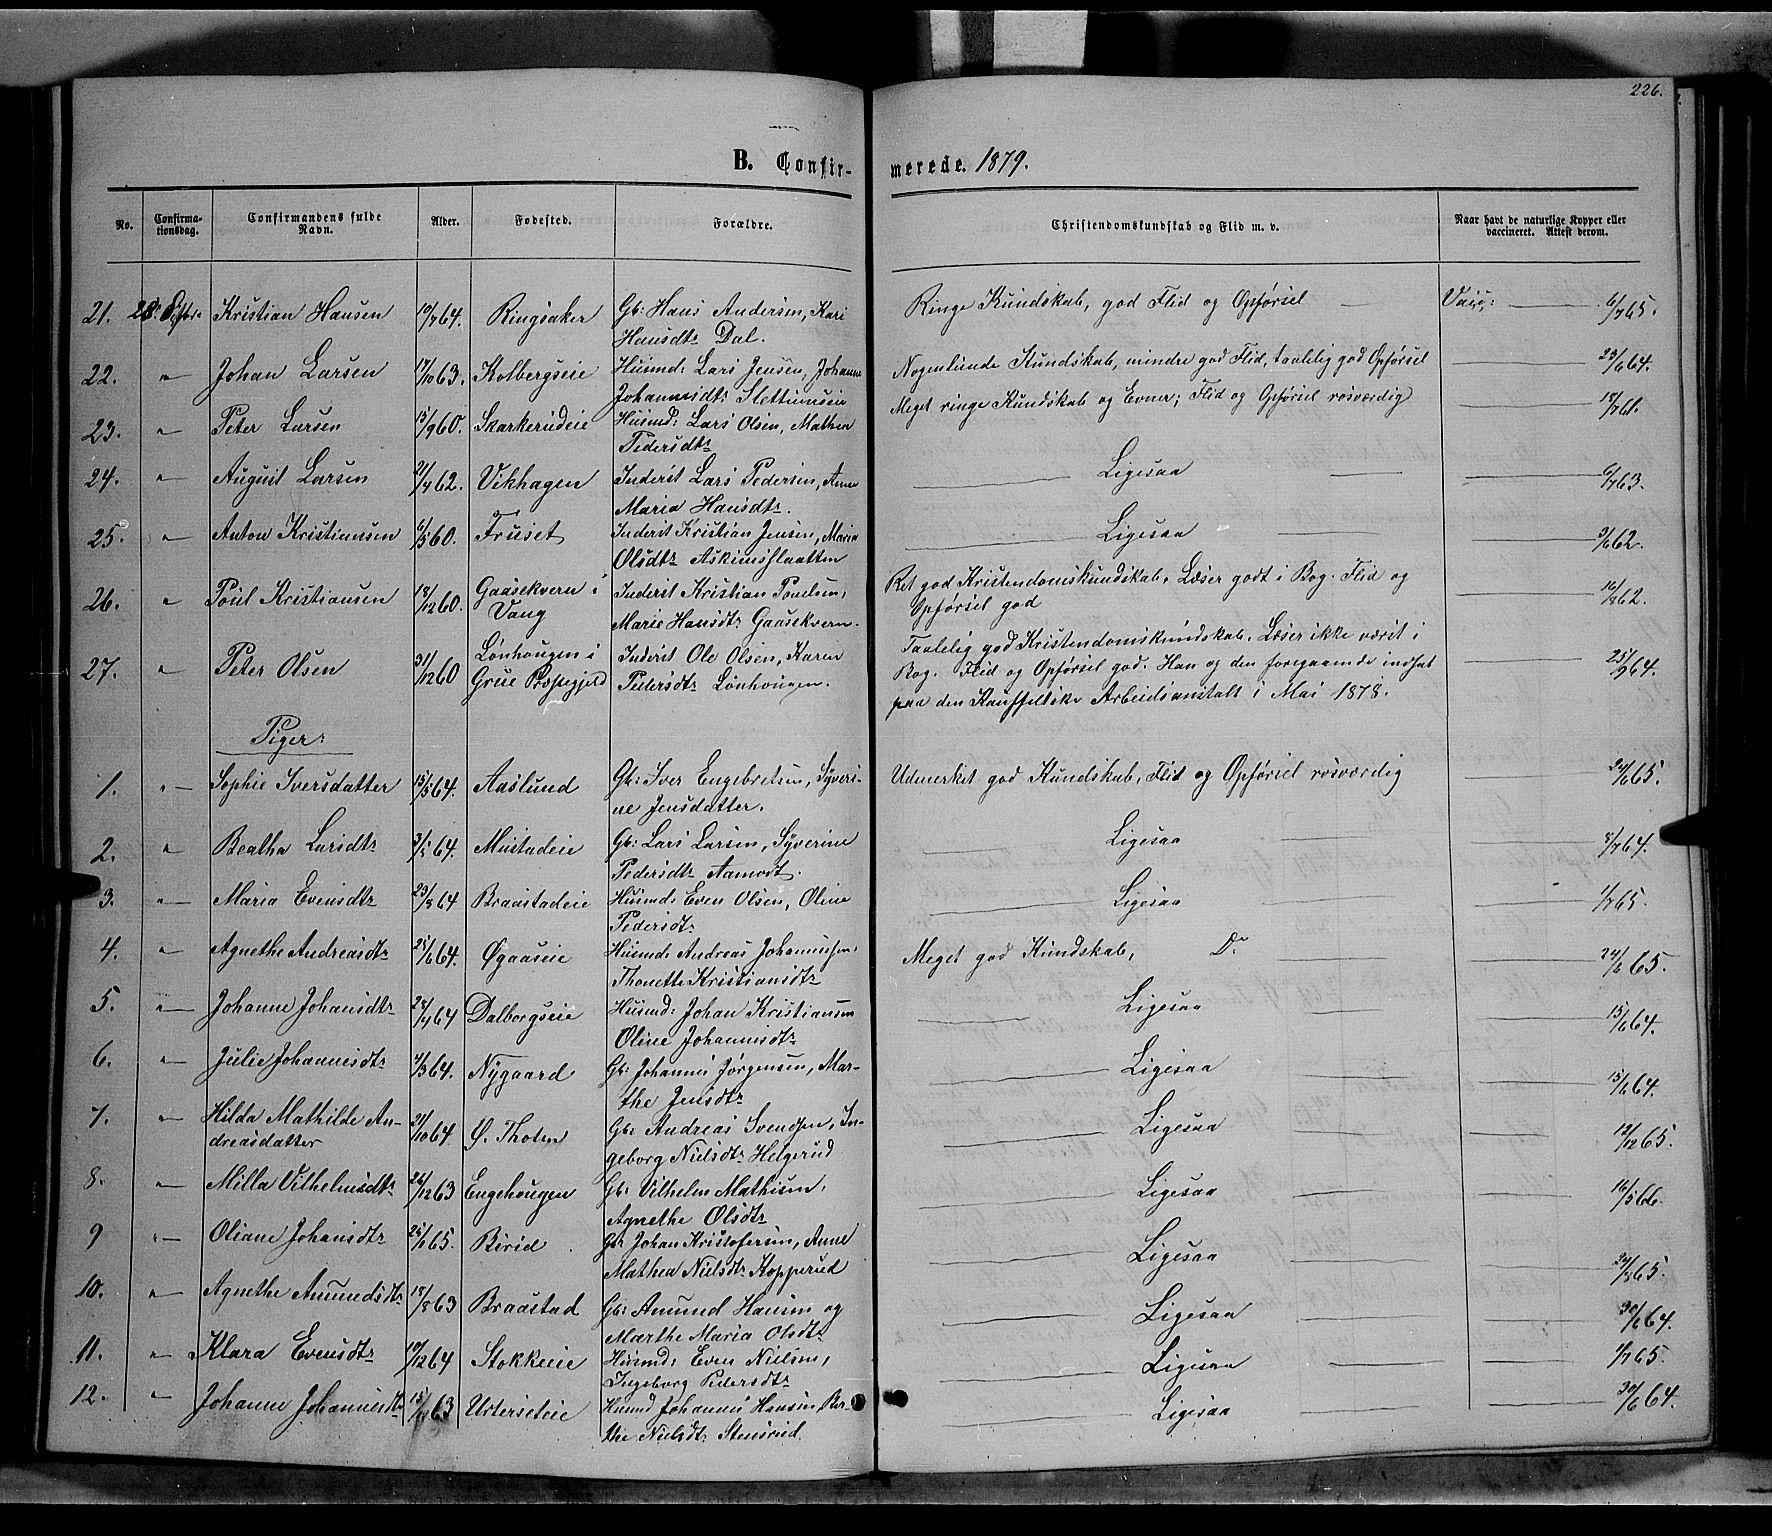 226.
B. Confirmerede. 1879.
No. | Confirmationsdag. | Confirmandens fulde Navn. | Alder. | Fødested. | Forældre. | Christendomskundskab og Flid m. v. | Naar havt de naturlige Kopper eller vaccineret. Attest derom.
21. | 28. Septbr. | Kristian Hansen | 19/7 64. | Ringsaker | Gb: Hans Andersen, Kari | Ringe Kundskab, god Flid og Opførsel | Vacc: 6/7 65.
Hansdtr Dal.
22. | " | Johan Larsen | 17/10 63. | Kolbergseie | Husmd: Lars Jensen, Johanne | Nogenlunde Kundskab, mindre god Flid, taalelig god Opførsel | 23/6 64.
Johannesdtr
23. | " | Peter Larsen | 15/9 60. | Skarkerudeie | Husmd: Lars Olsen, Mathea | Meget ringe Kundskab og Evner; Flid og Opførsel rosværdig | 17/7 61.
Pedersdtr
24. | " | August Larsen | 21/4 62. | Vikhagen | Inderst Lars Pedersen, Anne | Ligesaa | 6/7 63.
Maria Hansdtr.
25. | " | Anton Kristiansen | 6/5 60. | Fruset | Inderst Kristian Jensen, Maria | Ligesaa | 3/6 62.
Olsdtr Askimsflaatten
26. | " | Poul Kristiansen | 18/12 60. | Gaasekvern i | Inderst Kristian Poulsen, | Ret god Kristendomskundskab. Læser godt i Bog. Flid og | 16/8 62.
Vang | Marie Hansdtr Gaasekvern. | Opførsel god
27. | " | Peter Olsen | 31/12 60 | Lønhougen i | Inderst Ole Olsen, Karen | Taalelig god Kristendomskundskab. Læser ikke værst i | 25/9 64.
Grue Præstegjeld | Pedersdtr Lønhougen. | Bog. Flid og Opførsel god. Han og den foregaaende indsat
paa den Arbeidsanstalt i Mai 1878.
Piger
1. | " | Sophie Iversdatter | 15/5 64. | Aaslund | Gb: Iver Engebretsen, Syveri- | Udmerket god Kundskab, Flid og Opførsel rosværdig | 24/6 65.
ne Jensdatter.
2. | " | Beatha Larsdtr | 64. | Mustadeie | Gb: Lars Larsen, Syverine | Ligesaa | 8/7 64.
Pedersdtr Aamodt.
3. | " | Maria Evensdtr | 23/8 64 | Braastadeie | Husmd: Even Olsen, Oline | Ligesaa | 1/7 65.
Pedersdtr
4. | " | Agnethe Andreasdtr | 25/6 64. | Øgaaseie | Husmd: Andreas Johannessen, | Meget god Kundskab, Do | 24/6 65.
Thonette Kristiansdtr
5. | " | Johanne Johansdtr | 28/4 64 | Dalborgseie | Husmd: Johan Kristiansen | Ligesaa | 15/6 64.
Oline Johannesdtr
6. | " | Julie Johannesdtr | 64. | Nygaard | Gb: Johannes Jørgensen, Mar- | Ligesaa | 15/6 64.
the Jensdtr
7. | " | Hilda Mathilde An- | 21/10 64 | Ø. Thoten | Gb: Andreas Svendsen, In- | Ligesaa | 12/12 65.
dreasdatter | geborg Nielsdtr Helgerud
8. | " | Milla Vilhelmsdtr | 24/12 63 | Engehougen | Gb: Vilhelm Mathisen, | Ligesaa | 16/5 66.
Agnethe Olsdtr
9 | " | Oliane Johansdtr | 65. | Birid | Gb: Johan Kristofersen, Anne | Ligesaa | 24/8 65.
Mathea Nielsdtr Kopperud
10. | " | Agnethe Amundsdtr | 18/8 63 | Braastad | Gb: Amund Hansen og | Ligesaa | 30/6 64.
Marthe Maria Olsdtr
11. | " | Klara Evensdtr | 19/12 64 | Stokkeie | Husmd: Even Nielsen, | Ligesaa | 1/7 65.
Ingeborg Pedersdtr
12. | " | Johanne Johannesdtr | 63 | Urterseteie | Husmd Johannes Hansen, Ber- | Ligesaa | 30/6 64.
the Nielsdtr Stensrud.